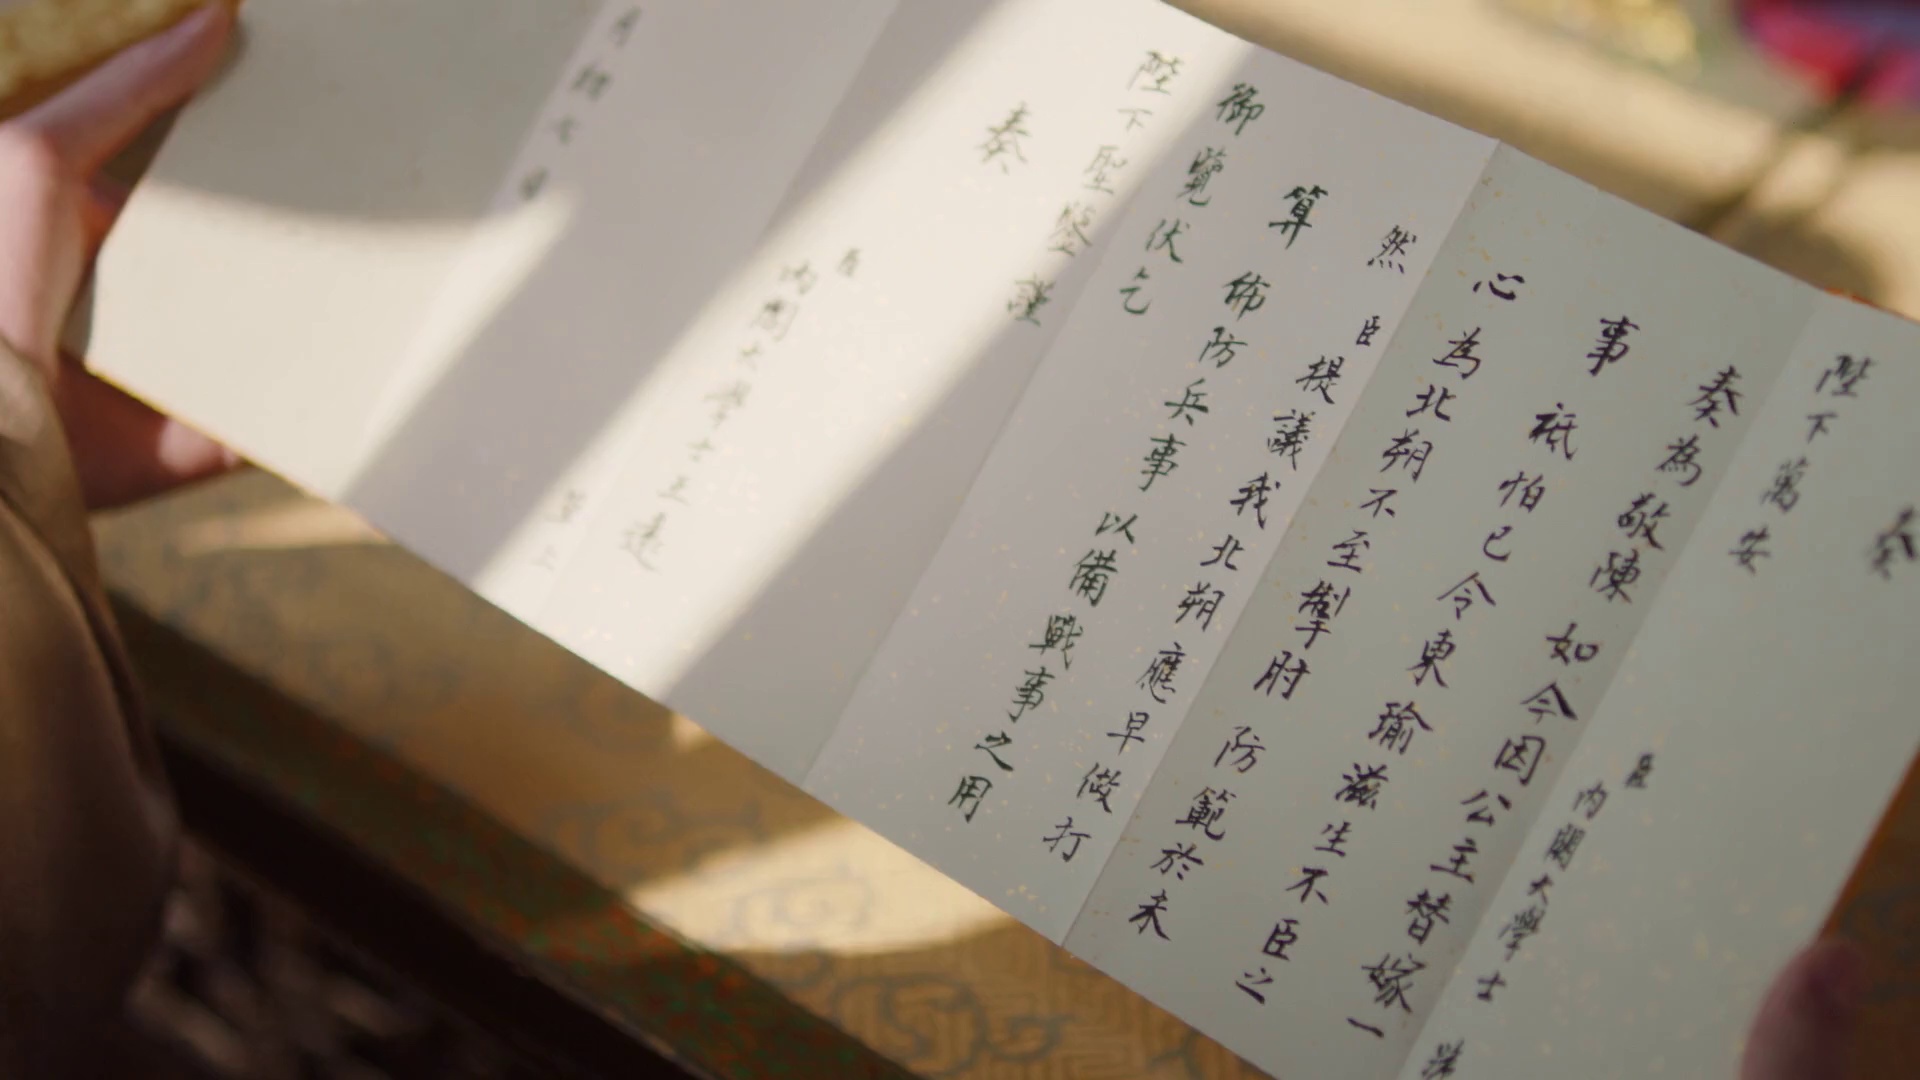 奏
陛下萬安
臣 內閣大學士
奏為敬陳如今因公主替嫁一
事 祗怕已令東瑜滋生不臣之
心 為北朔不至掣肘 防範於未
然 臣提議我北朔應早做打
算 佈防兵事以備戰事之用
御覽伏乞
陛下聖鑒謹
奏
臣 內閣大學士王遠 上